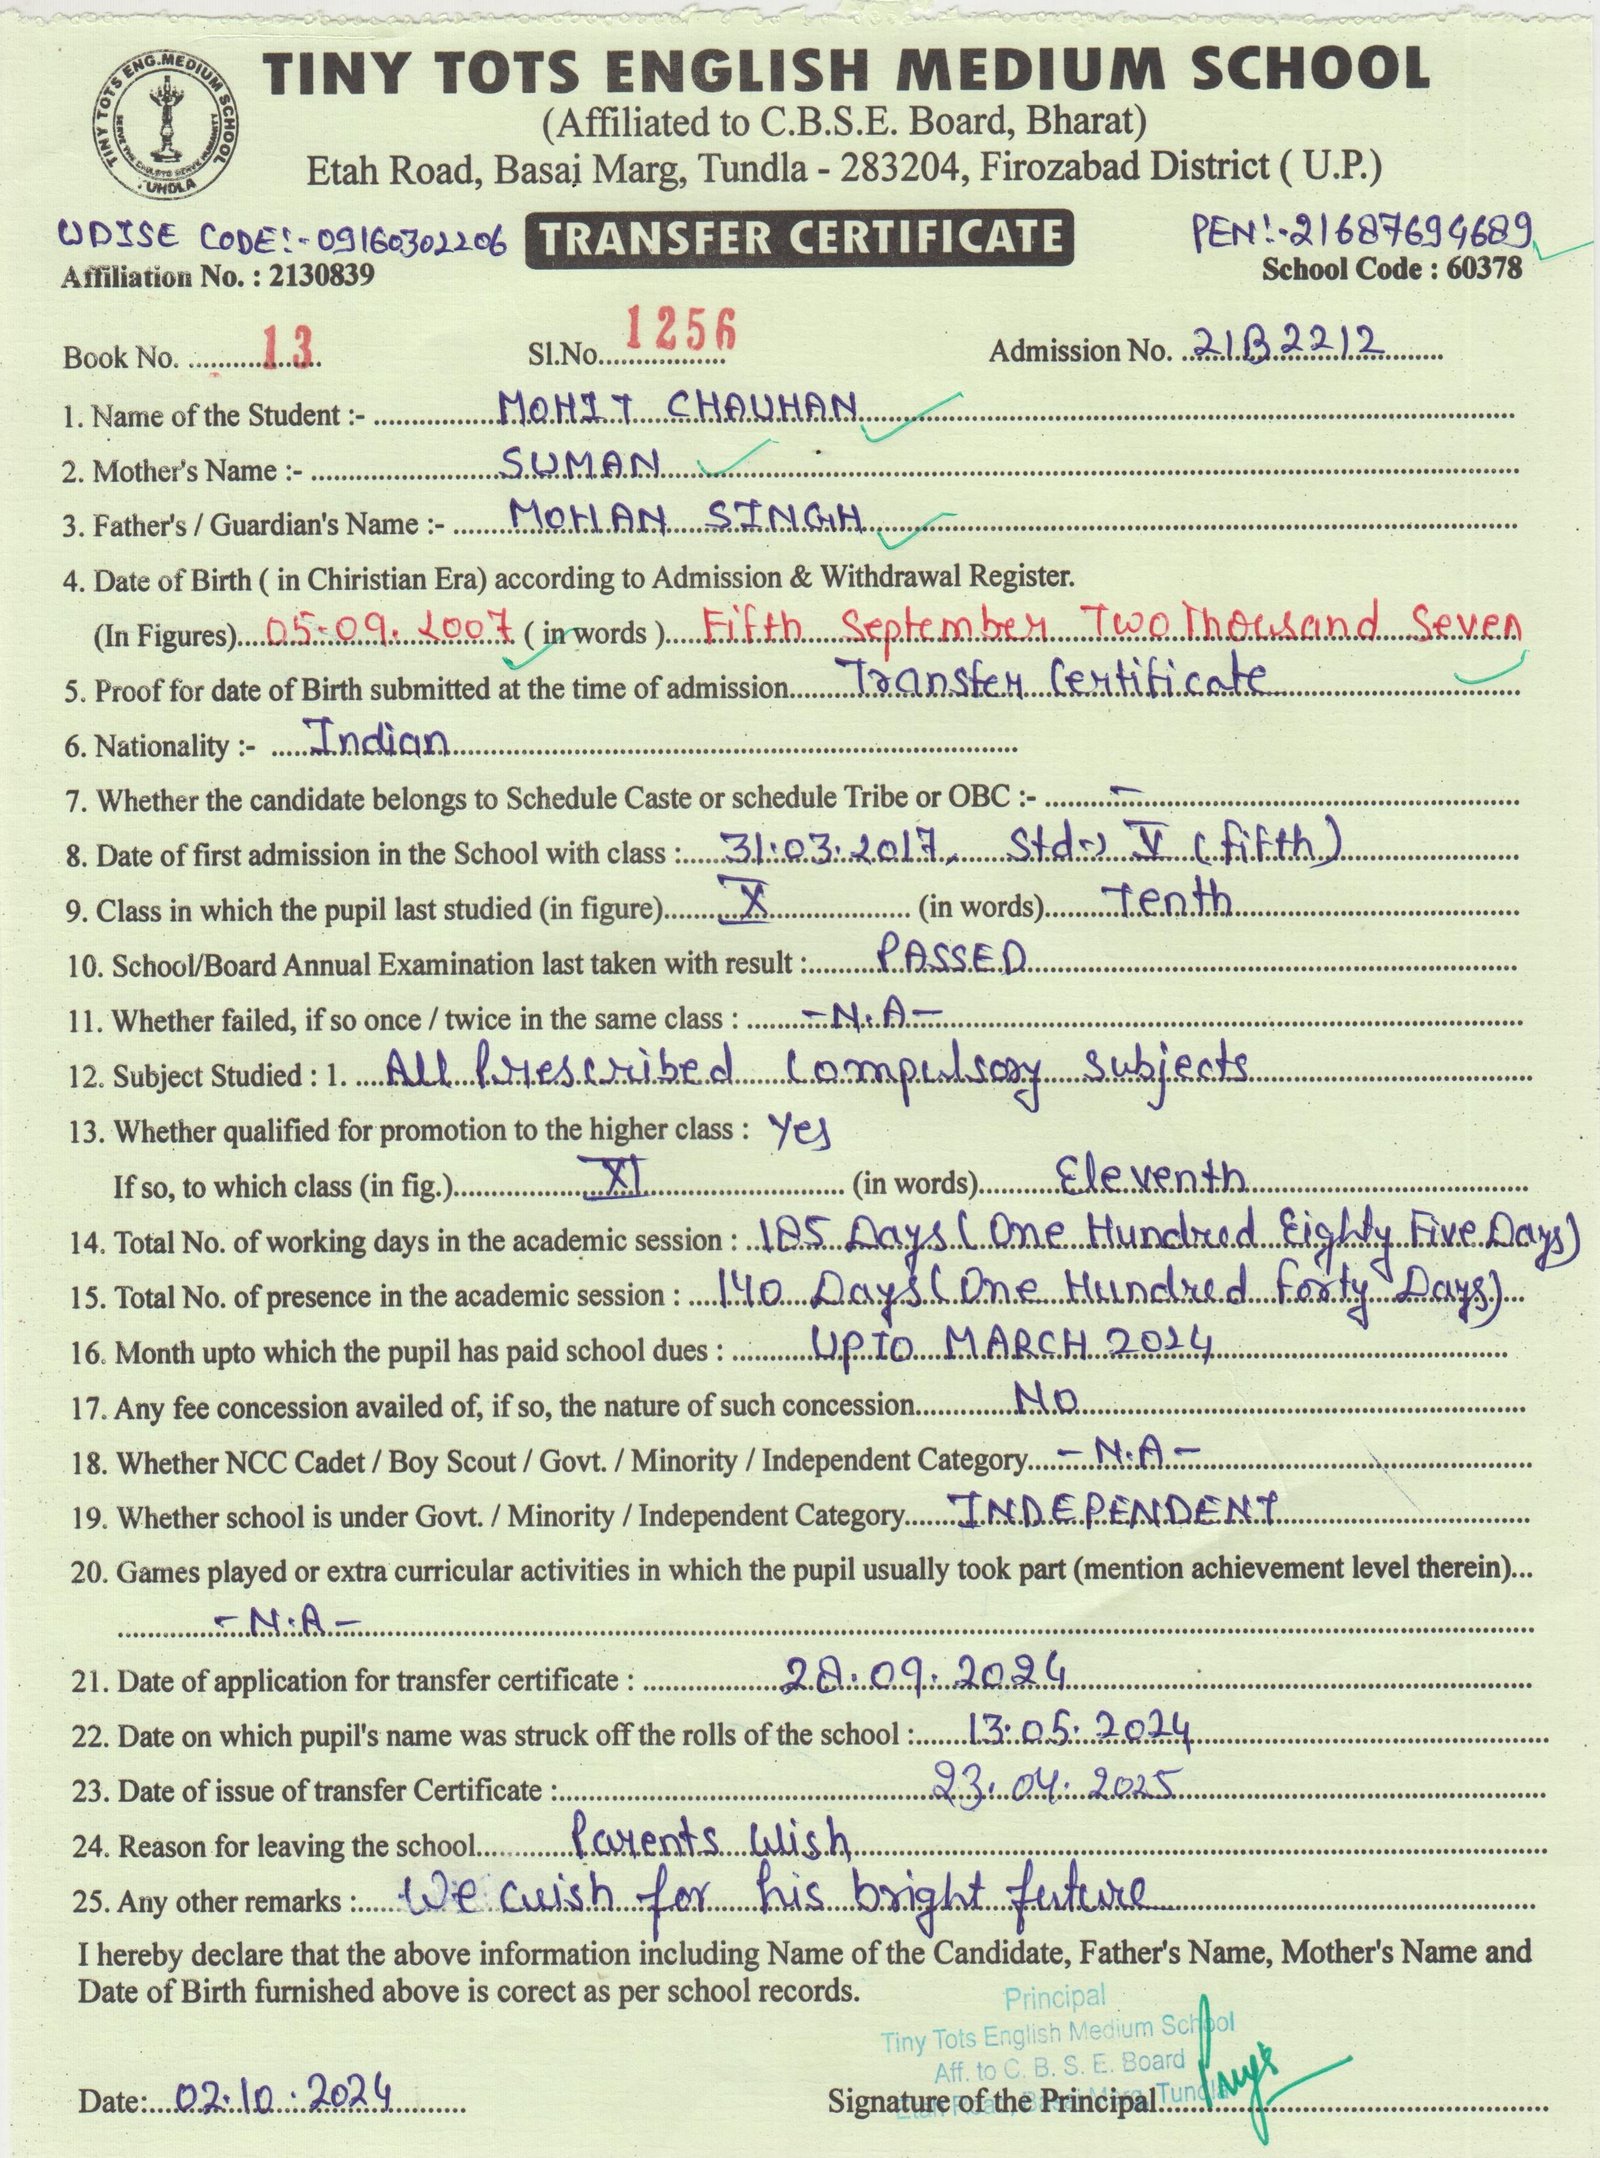 TINY TOTS ENG.MEDIUM SCHOOL
TUNDLA
TINY TOTS ENGLISH MEDIUM SCHOOL
(Affiliated to C.B.S.E. Board, Bharat)
Etah Road, Basai Marg, Tundla - 283204, Firozabad District ( U.P.)
UDISE CODE:-09160302206 TRANSFER CERTIFICATE PEN:-21687694689
Affiliation No. : 2130839 School Code : 60378
Book No. 13 Sl.No. 1256 Admission No. 21B2212
1. Name of the Student :- MOHIT CHAUHAN
2. Mother's Name :- SUMAN
3. Father's / Guardian's Name :- MOHAN SINGH
4. Date of Birth ( in Chiristian Era) according to Admission & Withdrawal Register.
(In Figures) 05-09.2007 ( in words ) Fifth September Two Thousand Seven
5. Proof for date of Birth submitted at the time of admission Transfer Certificate
6. Nationality :- Indian
7. Whether the candidate belongs to Schedule Caste or schedule Tribe or OBC :- -
8. Date of first admission in the School with class : 31.03.2017, Std:-) V (fifth)
9. Class in which the pupil last studied (in figure) X (in words) Tenth
10. School/Board Annual Examination last taken with result : PASSED
11. Whether failed, if so once / twice in the same class : -N.A-
12. Subject Studied : 1. All Prescribed Compulsory Subjects
13. Whether qualified for promotion to the higher class : Yes
If so, to which class (in fig.) XI (in words) Eleventh
14. Total No. of working days in the academic session : 185 Days (One Hundred Eighty Five Days)
15. Total No. of presence in the academic session : 140 Days (One Hundred Forty Days)
16. Month upto which the pupil has paid school dues : UPTO MARCH 2024
17. Any fee concession availed of, if so, the nature of such concession NO
18. Whether NCC Cadet / Boy Scout / Govt. / Minority / Independent Category -N.A-
19. Whether school is under Govt. / Minority / Independent Category INDEPENDENT
20. Games played or extra curricular activities in which the pupil usually took part (mention achievement level therein)...
-N.A-
21. Date of application for transfer certificate : 28.09.2024
22. Date on which pupil's name was struck off the rolls of the school : 13.05.2024
23. Date of issue of transfer Certificate : 23.04.2025
24. Reason for leaving the school Parents Wish
25. Any other remarks : We wish for his bright future
I hereby declare that the above information including Name of the Candidate, Father's Name, Mother's Name and
Date of Birth furnished above is corect as per school records.
Principal
Tiny Tots English Medium School
Aff. to C. B. S. E. Board
Etah Road, Basai Marg, Tundla
Date: 02.10.2024 Signature of the Principal